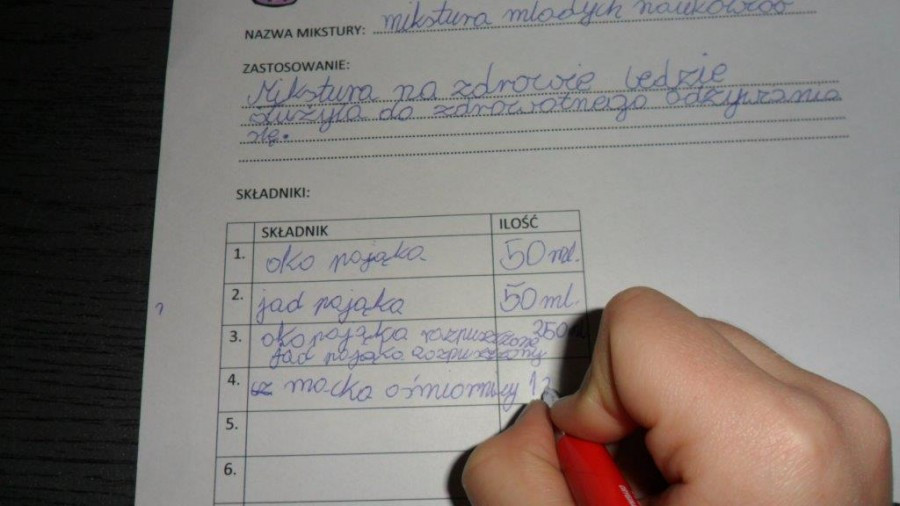 NAZWA MIKSTURY: mikstura młodych naukowców
ZASTOSOWANIE:
Mikstura na zdrowie będzie
służyła do zdrowotnego odżywiania
się.
SKŁADNIKI:
SKŁADNIK ILOŚĆ
1. oko pająka 50 ml.
2. jad pająka 50 ml.
3. oko pająka rozpuszczone 250
jad pająka rozpuszczony
4. macka ośmiornicy 12
5.
6.